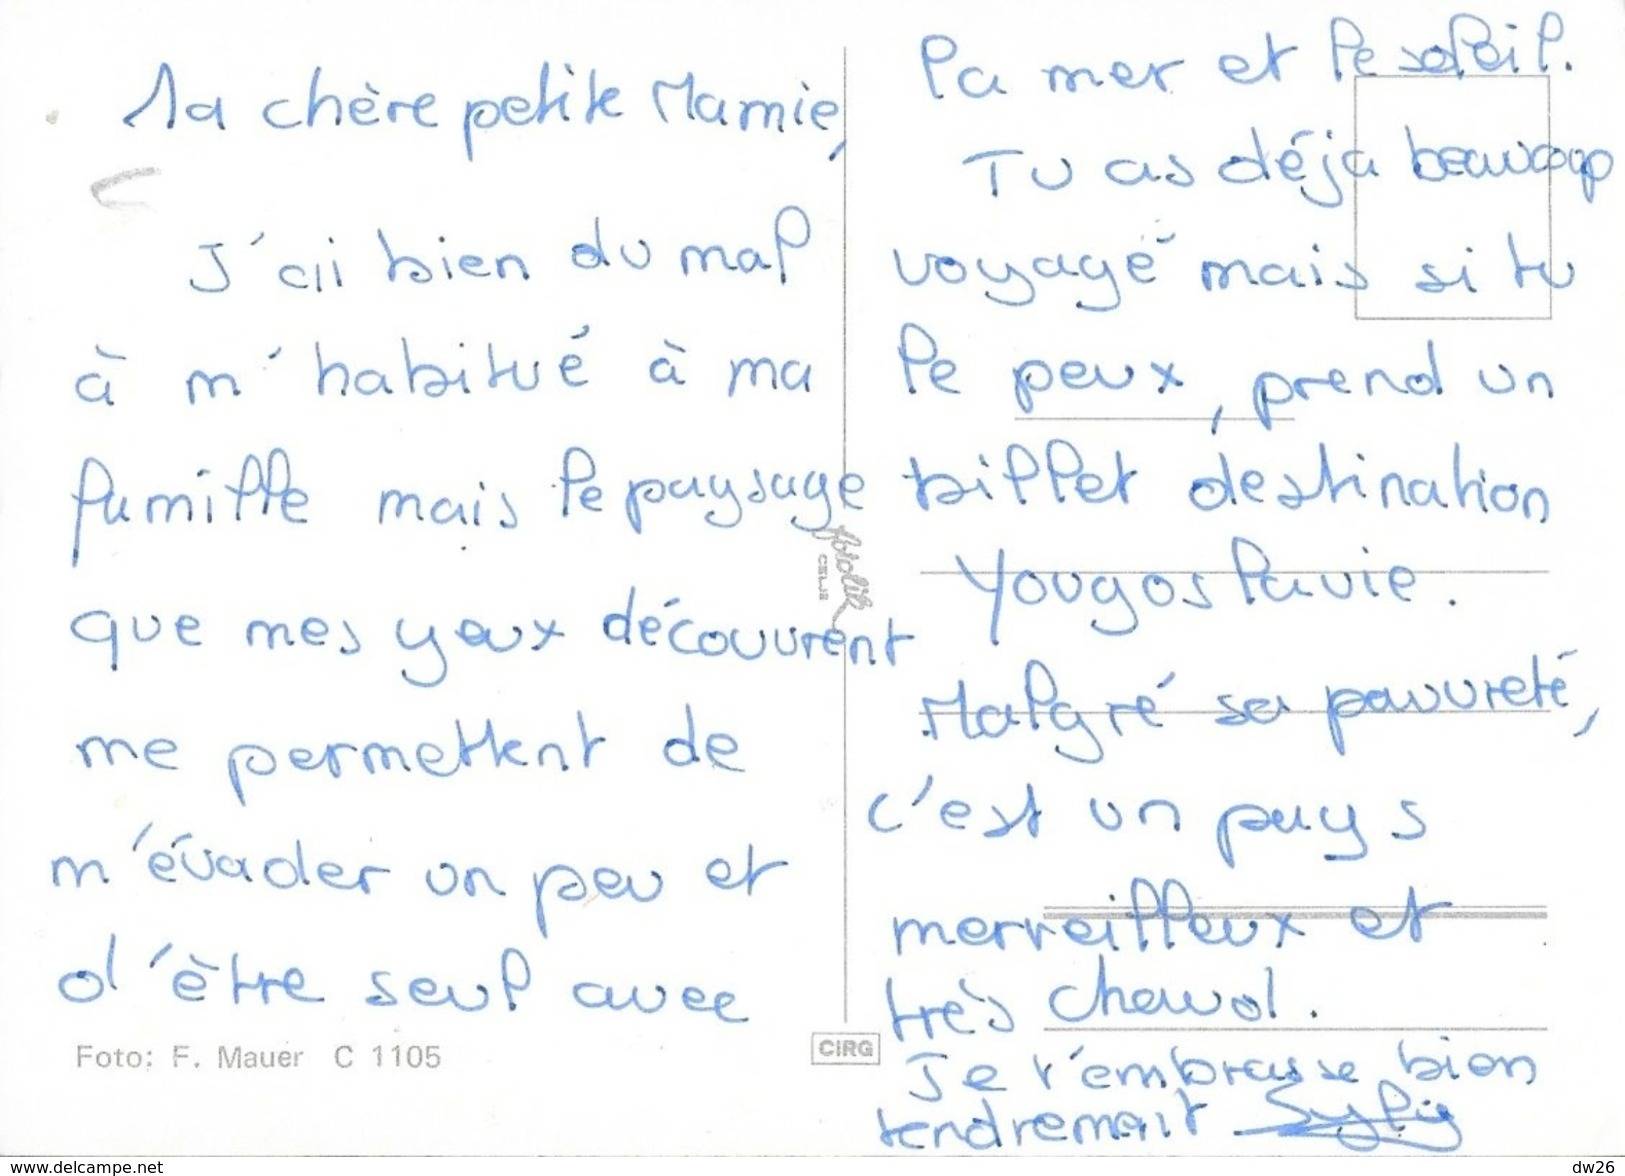 Ma chère petite Mamie,
J'ai bien du mal
à m'habitué à ma
famille mais le paysage
que mes yeux découvrent
me permettent de
m'évader un peu et
d'être seul avec
la mer et le soleil.
Tu as déjà beaucoup
voyagé mais si tu
le peux, prend un
billet destination
Yougoslavie.
Malgré sa pauvreté,
c'est un pays
merveilleux et
très chawd.
Je t'embrasse bien
tendrement Sylvie
fotolik
CELJE
Foto: F. Mauer C 1105
CIRG
www.delcampe.net
dw26